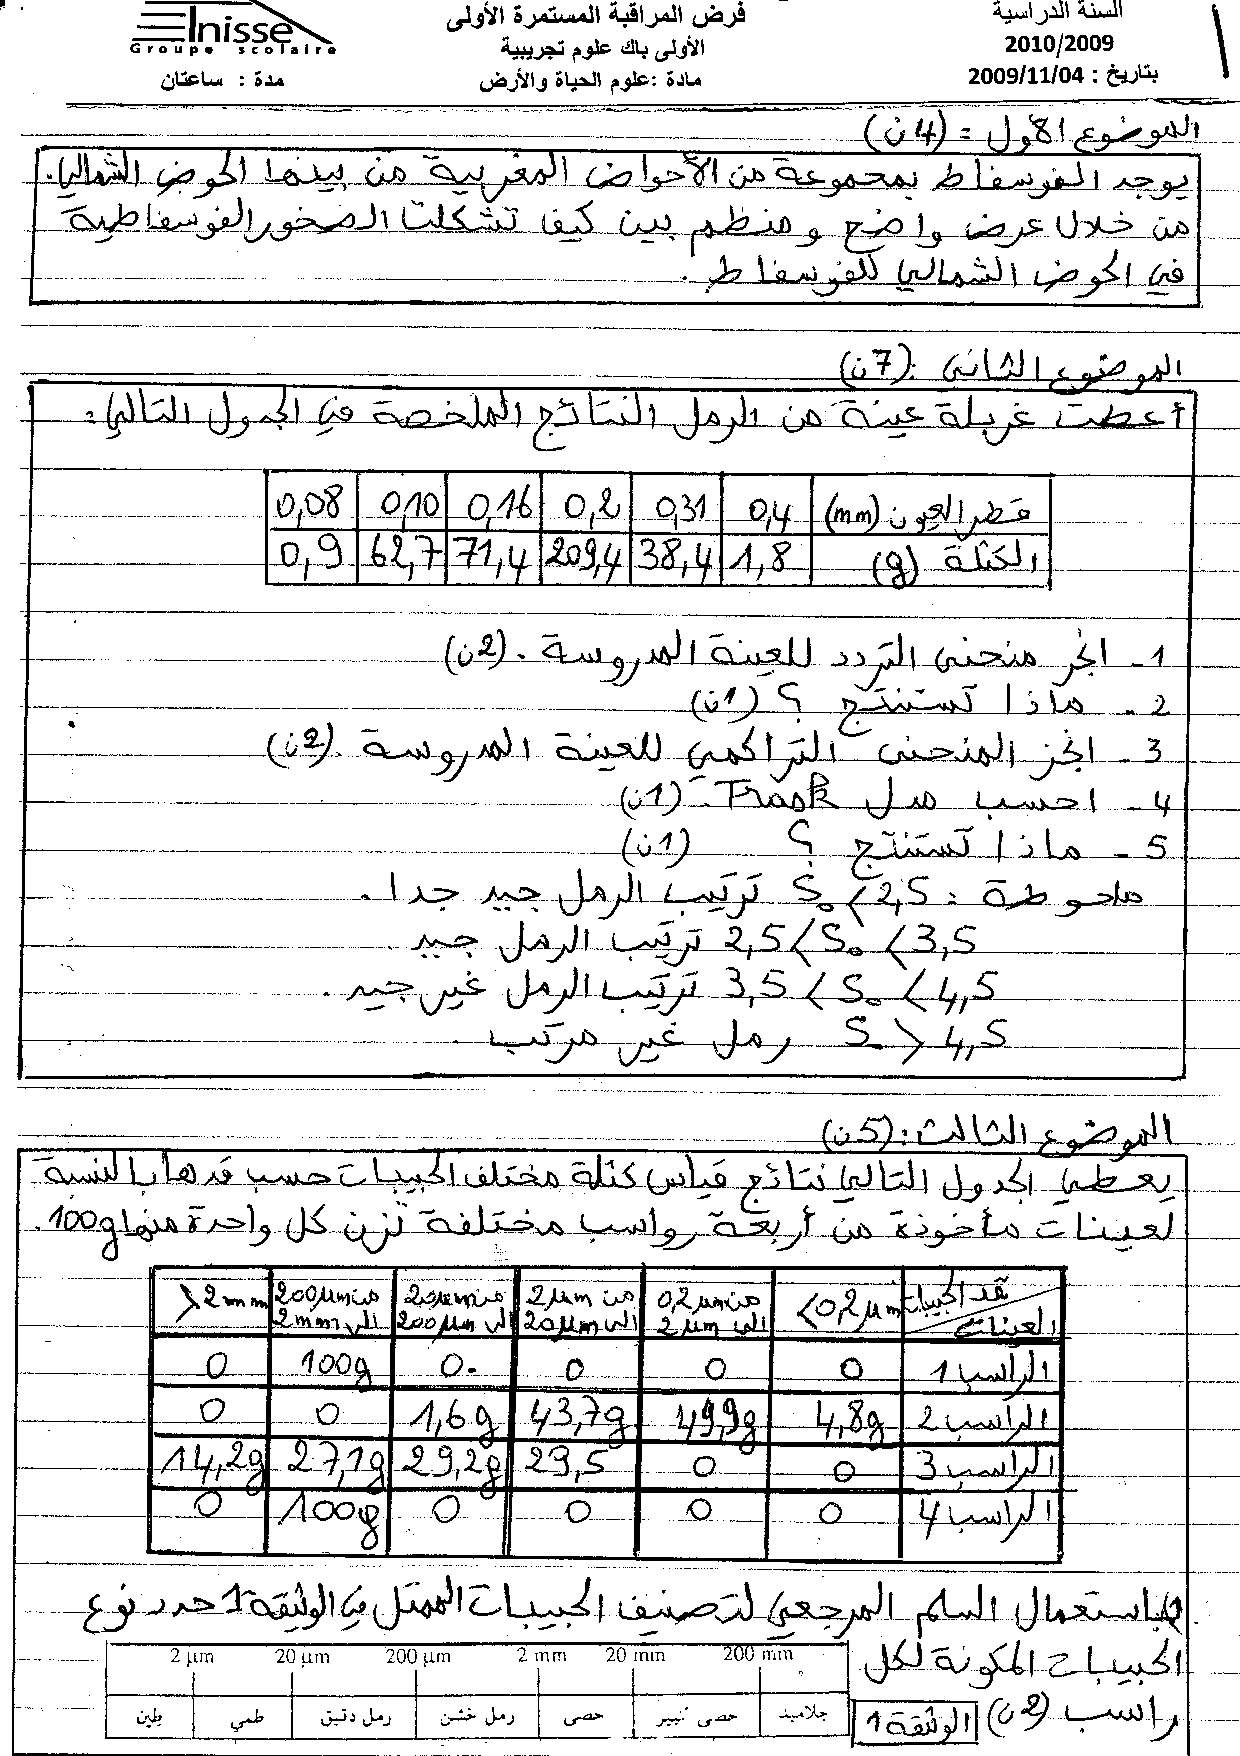 السنة الدراسية
2010/2009
بتاريخ : 2009/11/04
فرض المراقبة المستمرة الأولى
الأولى باك علوم تجريبية
مادة :علوم الحياة والأرض
Inisse
Groupe scolaire
مدة : ساعتان
1
الموضوع الأول :- (4ن)
يوجد الفوسفاط بمجموعة من الأحواض المغربية من بينها الحوض الشمالي.
من خلال عرض واضح ومنظم بين كيف تشكلت الصخور الفوسفاطية
في الحوض الشمالي للفوسفاط .
الموضوع الثاني :(7ن)
أعطت غربلة عينة من الرمل النتائج الملخصة في الجدول التالي:
قطر العيون (mm) 0,4 0,31 0,2 0,16 0,10 0,08
الكتلة (g) 1,8 38,4 209,4 71,4 62,7 0,9
1- انجز منحنى التردد للعينة المدروسة . (2ن)
2- ماذا تستنتج ؟ (1ن)
3- انجز المنحنى التراكمي للعينة المدروسة .(2ن)
4- احسب مدل Trask .(1ن)
5- ماذا تستنتج ؟ (1ن)
ملحوظة : S₀<2,5 ترتيب الرمل جيد جدا .
2,5<S₀<3,5 ترتيب الرمل جيد .
3,5<S₀<4,5 ترتيب الرمل غير جيد .
S₀>4,5 رمل غير مرتب .
الموضوع الثالث :(5ن)
يعطي الجدول التالي نتائج قياس كتلة مختلف الحبيبات حسب قدها بالنسبة
لعينات مأخوذة من أربعة رواسب مختلفة تزن كل واحدة منها 100g.
قد الحبيبات العينات <0,2µm من 0,2µm الى 2µm من 2µm الى 20µm من 20µm الى 200µm من 200µm الى 2mm >2mm
الراسب 1 0 0 0 0. 100g 0
الراسب 2 4,8g 49,9g 43,7g 1,6g 0 0
الراسب 3 0 0 29,5 29,2g 27,1g 14,2g
الراسب 4 0 0 0 0 100g 0
1) باستعمال السلم المرجعي لتصنيف الحبيبات الممثل في الوثيقة 1 حدد نوع
الحبيبات المكونة لكل
راسب (2ن)
الوثيقة 1
2 µm 20 µm 200 µm 2 mm 20 mm 200 mm
طين طمي رمل دقيق رمل خشن حصى حصى كبير جلاميد